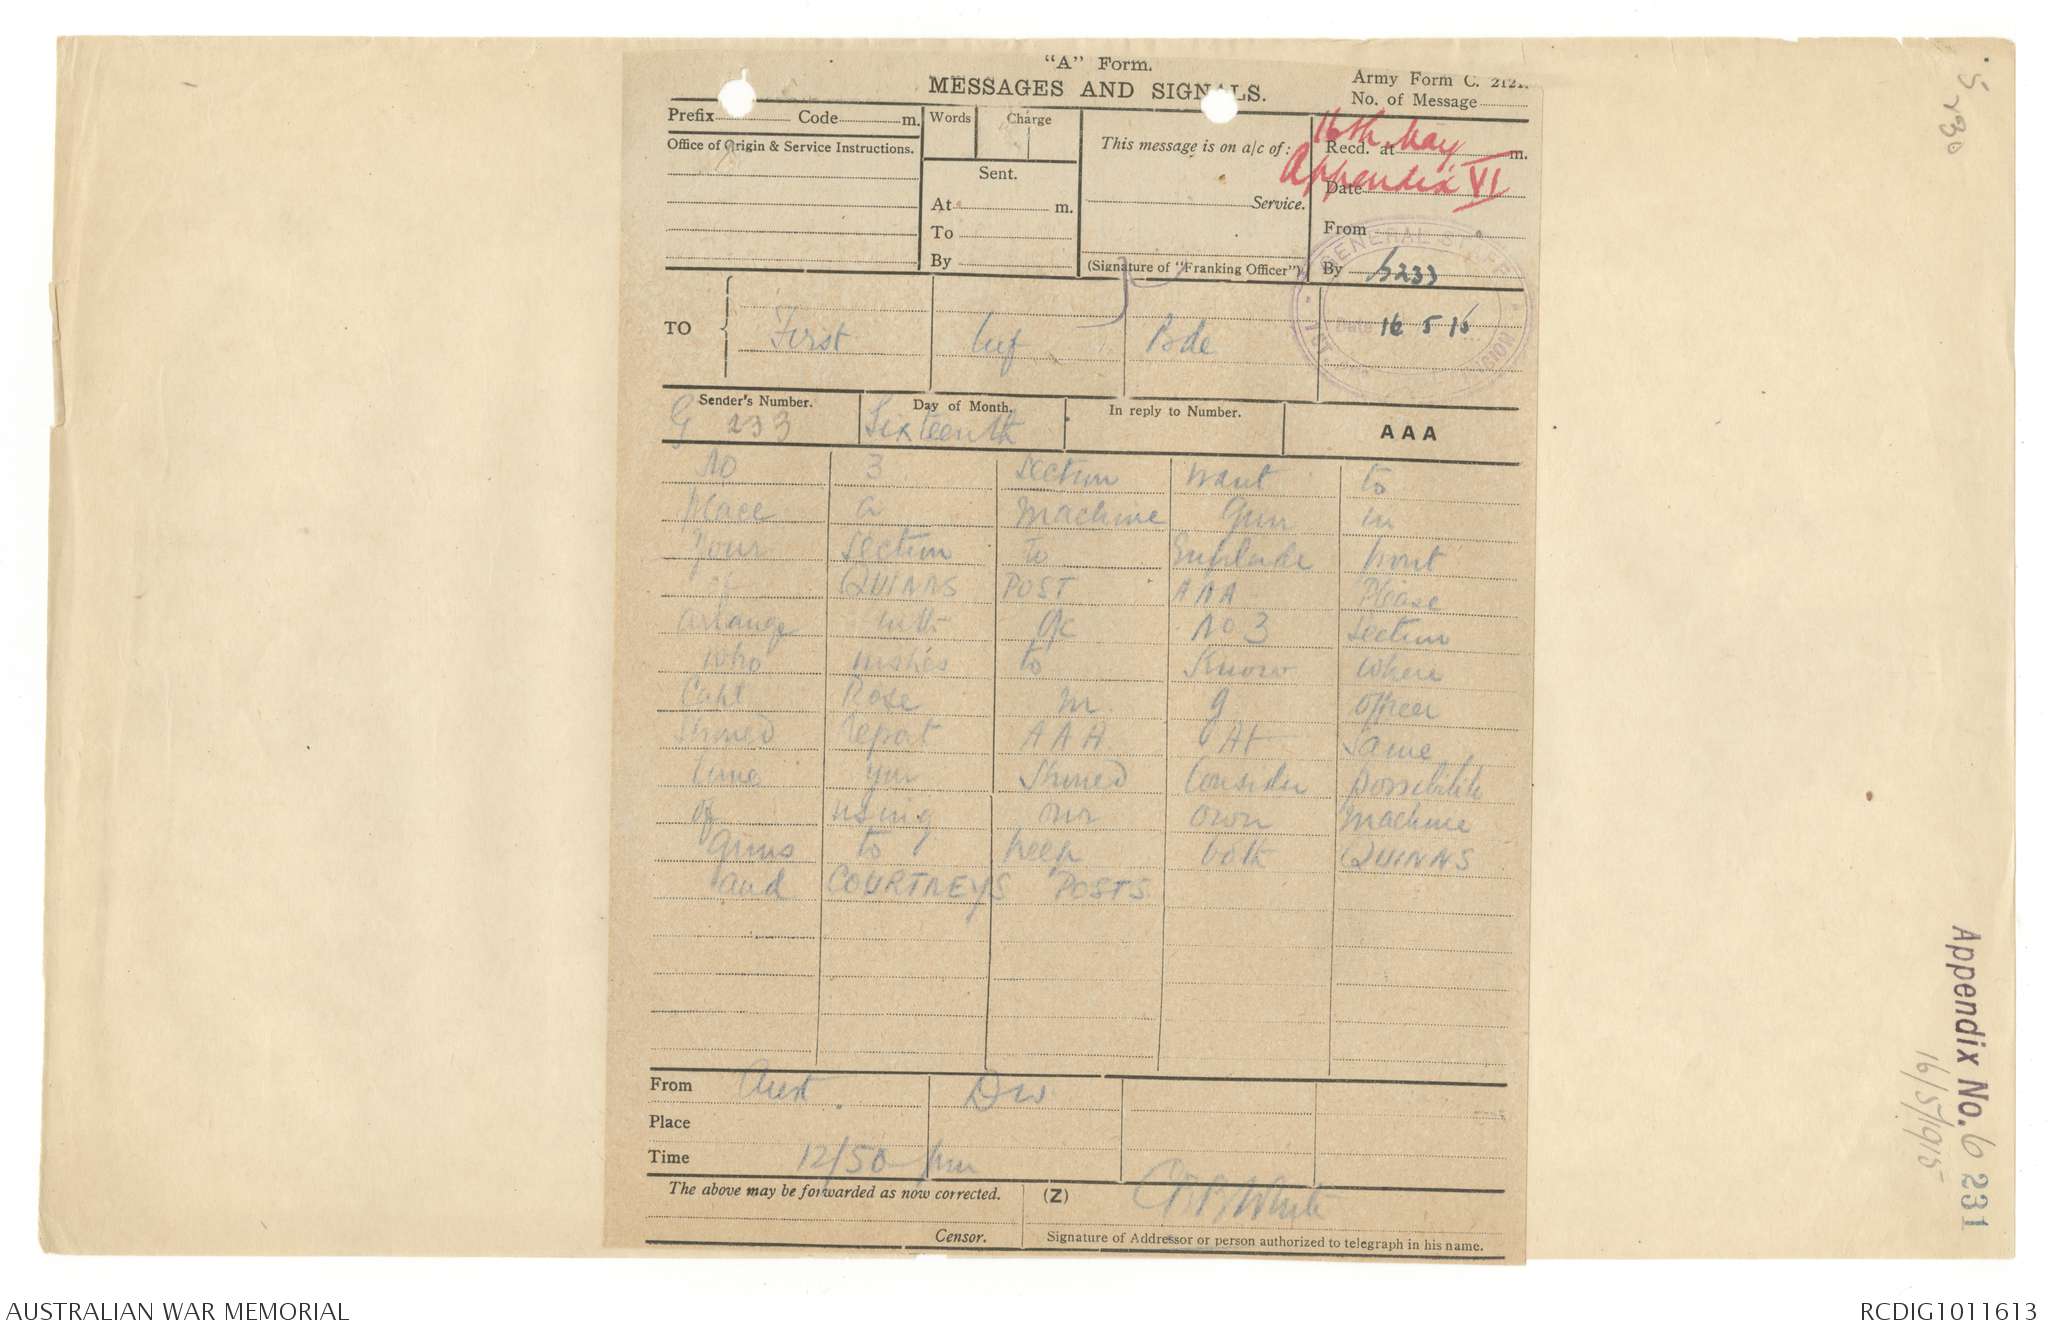 "A" Form.
MESSAGES AND SIGNALS.
Army Form C. 2121.
No. of Message
Prefix Code m.
Words Charge
This message is on a/c of:
16th May
Recd. at m.
Office of Origin & Service Instructions.
Sent.
Appendix VI
Date
At m.
Service.
To
From
By
(Signature of "Franking Officer")
By G233
GENERAL STAFF
Date 16 5 15
TO First Inf Bde
Sender's Number. Day of Month. In reply to Number. AAA
G 233 Sixteenth
No 3 Section want to
place a Machine Gun in
your Section to Enfilade front
of QUINNS POST AAA Please
arrange with OC No 3 Section
who wishes to Know where
Capt Rose m g officer
Should report AAA At same
time you should Consider possibility
of using our own Machine
Guns to keep both QUINNS
and COURTNEYS POSTS
From Aust. Div
Place
Time 12/50 pm
The above may be forwarded as now corrected. (Z) CBB White
Censor. Signature of Addressor or person authorized to telegraph in his name.
Appendix No. 6 231
16/5/1915
AUSTRALIAN WAR MEMORIAL
RCDIG1011613